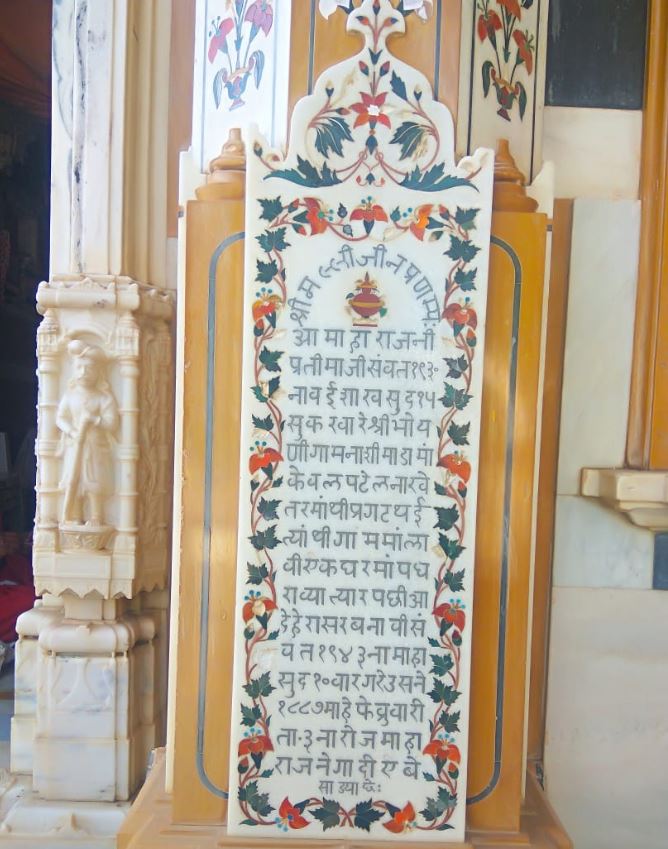 श्री मल्लीजीन प्रणम्यः
आ माहाराजनी
प्रतीमाजी संवत १९३०
ना वईशाख सुद १५
सुकरवारे श्री भोय
णी गामनाशीमाडामां
केवल पटेलना खे
तरमांथी प्रगट थई
त्यांथी गाममां ला
वी एक घरमां पध
राव्या त्यार पछी आ
देहेरासर बनावी सं
वत १९४३ ना माहा
सुद १० वार गरेउ सने
१८८७ माहे फेब्रुवारी
ता-३ ना रोज माहा
राजने गादीए बे
साड्या छेः